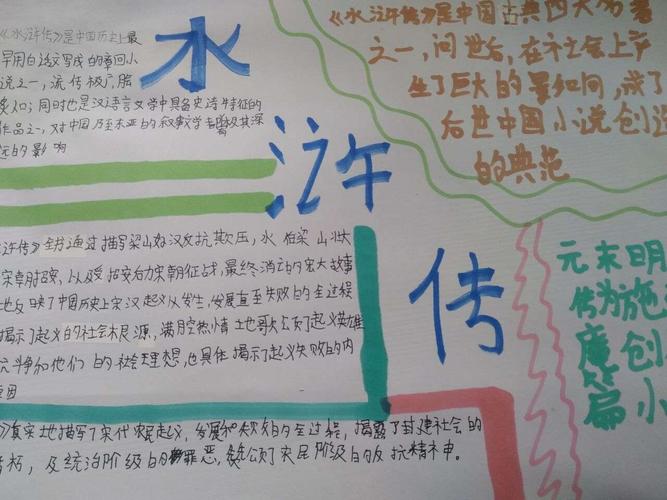 《水浒传》是中国历史上最
早用白话文写成的章回小
说之一，流传极广，脍
炙人口；同时也是汉语言文学中具备史诗特征的
作品之一，对中国乃至东亚的叙事文学都有及其深
远的影响
水
浒
传
《水浒传》是中国古典四大名著
之一，问世后，在社会上产
生了巨大的影响，成了
后世中国小说创造
的典范
浒传》全书通过描写梁山好汉反抗欺压，水泊梁山壮
宋朝招安，以及受招安后为宋朝征战，最终消亡的宏大故事
地反映了中国历史上宋江起义从发生，发展直至失败的全过程
揭示了起义的社会根源，满腔热情土也歌公颂了起义英雄
抗争和他们的社会理想，也具体揭示了起义失败的内
原因
》真实地描写了宋代农民起义，发展和失败的全过程，揭露了封建社会的
腐朽，及统治阶级的罪恶，歌颂了农民阶级的反抗精神。
元末明
传为施
廉创
篇小